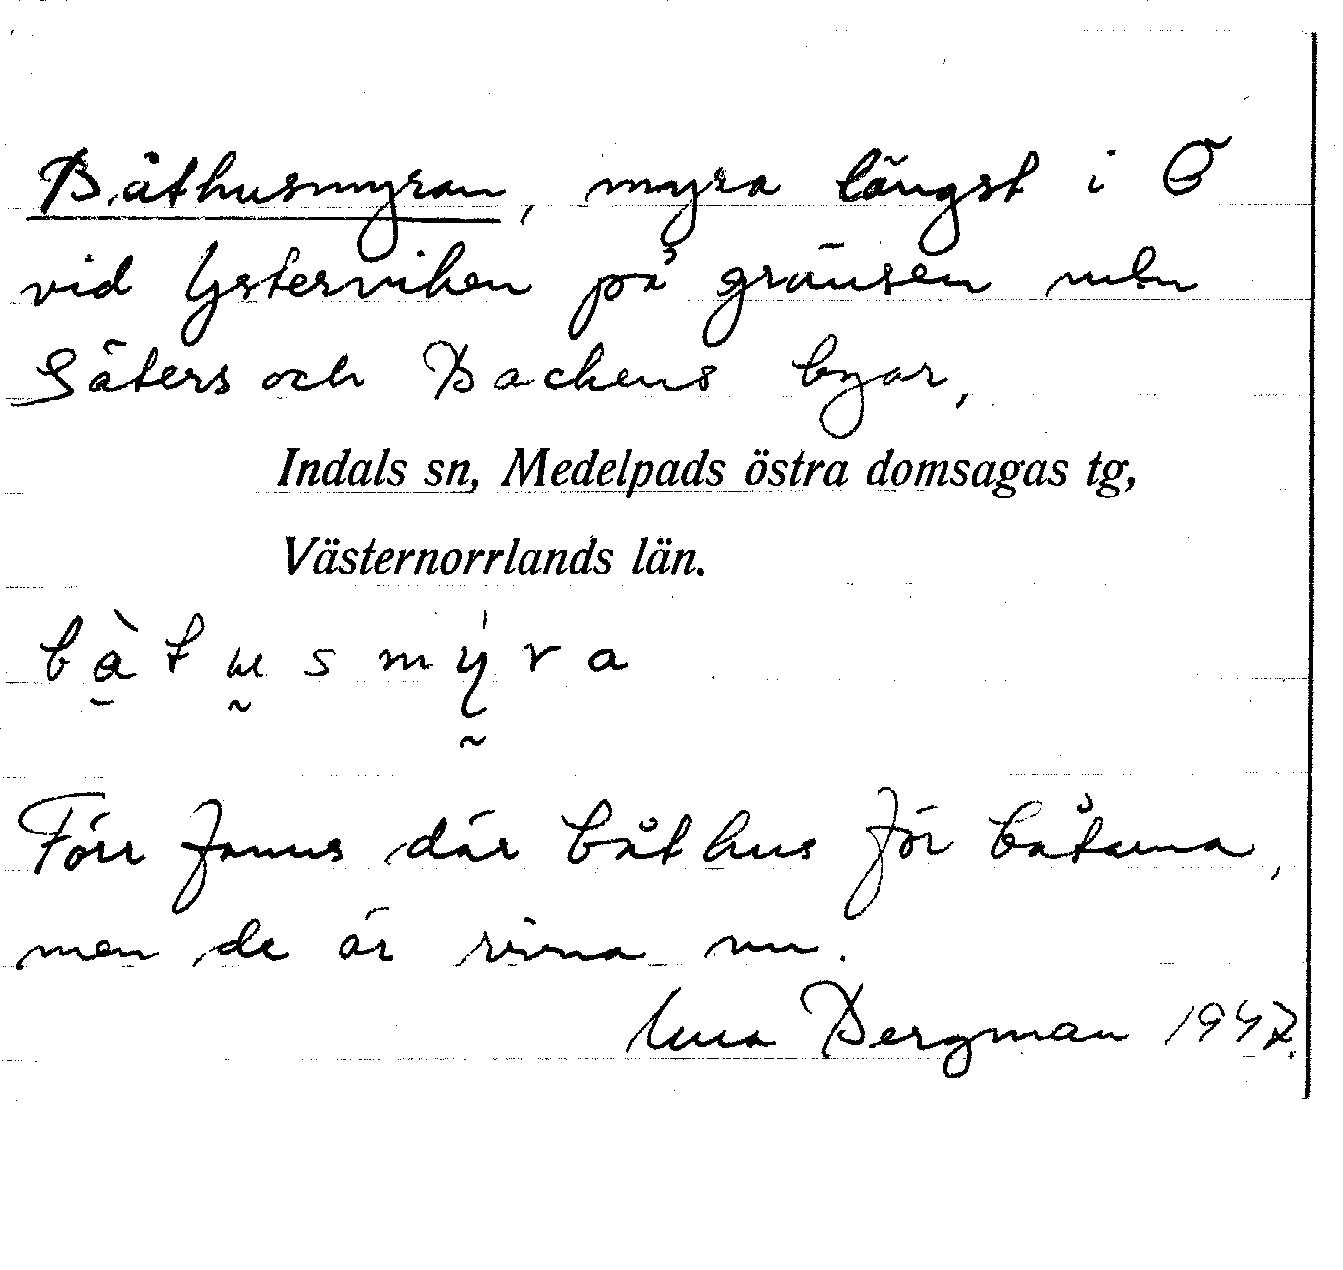 Båthusmyran, myra längst i Ö
vid Ysterviken på gränsen mln
Säters och Backens byar,
Indals sn, Medelpads östra domsagas tg,
Västernorrlands län.
bà̱tṵsmý̰ra
Förr fanns där båthus för båtarna,
men de är rivna nu.
Bergman 1947.